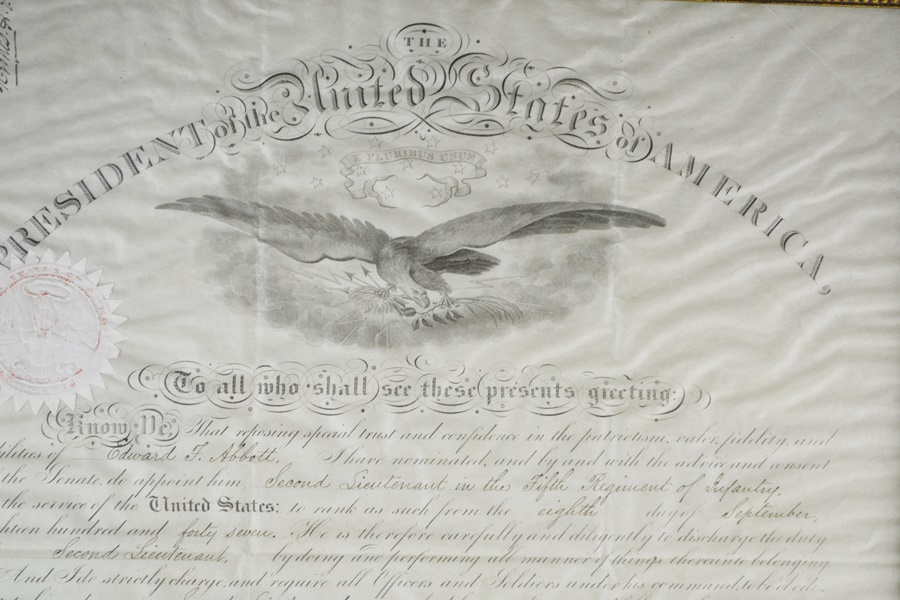 THE
PRESIDENT of the United States of AMERICA,
E PLURIBUS UNUM
To all who shall see these presents greeting:
Know Ye, That reposing special trust and confidence in the patriotism, valor, fidelity, and
ilities of Edward F. Abbott, I have nominated, and by and with the advice and consent
the Senate, do appoint him Second Lieutenant in the Fifth Regiment of Infantry,
the service of the United States: to rank as such from the eighth day of September,
hteen hundred and forty seven. He is therefore carefully and diligently to discharge the duty
Second Lieutenant, by doing and performing all manner of things thereunto belonging.
And I do strictly charge, and require all Officers and Soldiers under his command, to be obedi